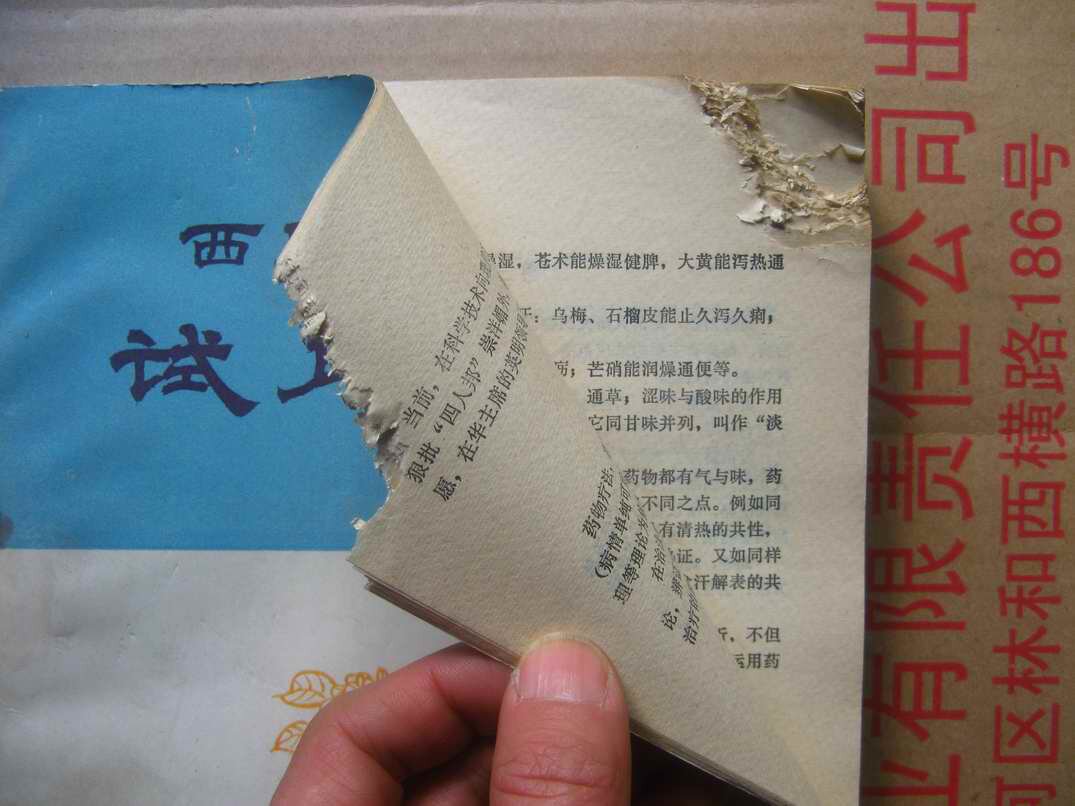 西
试
当前，在科学技术向
狠批“四人邦”崇洋媚外
愿，在华主席的英明领
药物疗法，
（病情单纯可
理等理论
在治
论，
治疗的
湿，苍术能燥湿健脾，大黄能泻热通
：乌梅、石榴皮能止久泻久痢；
；芒硝能润燥通便等。
通草；涩味与酸味的作用
它同甘味并列，叫作“淡
药物都有气与味，药
不同之点。例如同
有清热的共性，
证。又如同样
汗解表的共
，不但
运用药
业有限责任公司出
河区林和西横路186号